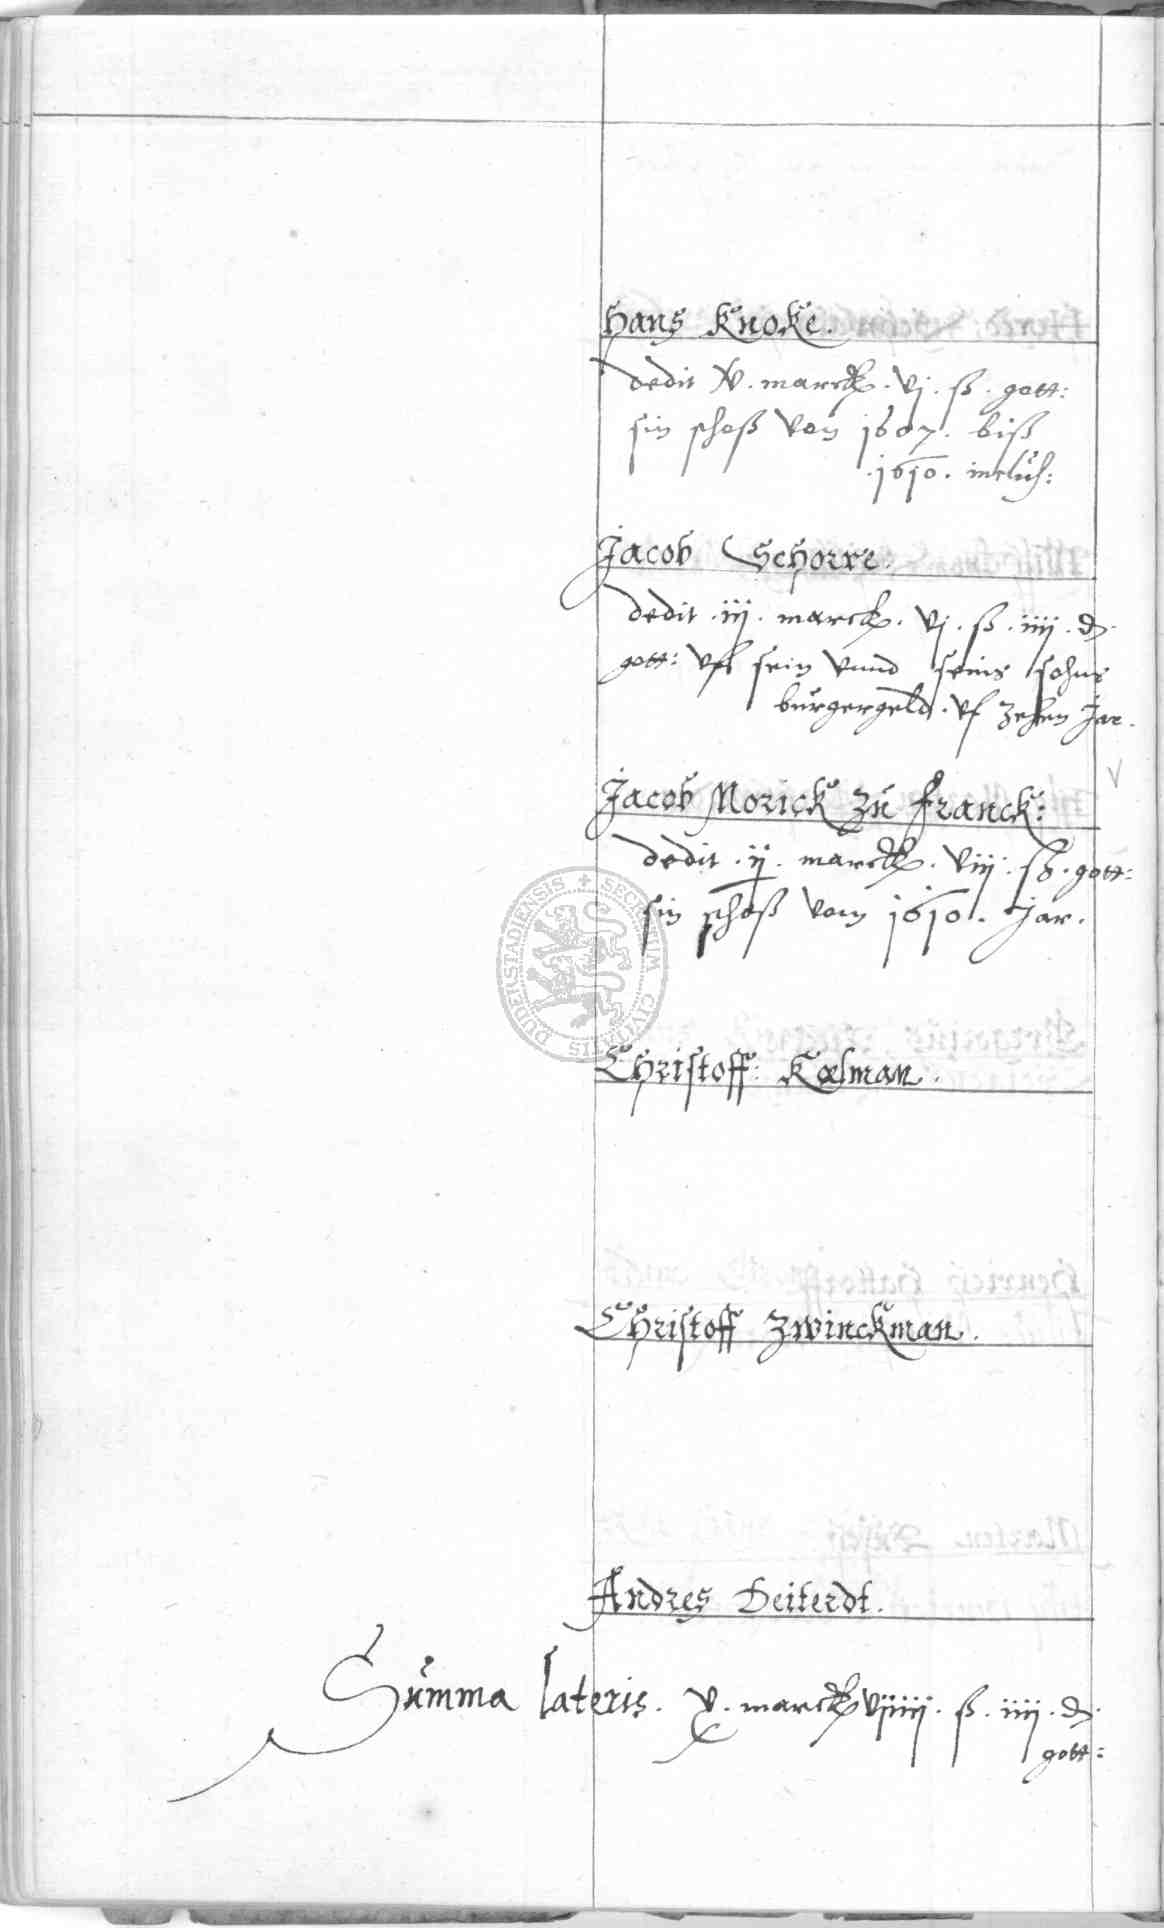 Hans Knoke.
dedit v. marck. vj. ß. gott:
sin schoß von 1607. biß
.1610. inclus:
Jacob Schorre.
dedit .iij. marck. vj. ß. iiij. d.
gott: vf sein vnnd seins sohns
burgergeld. vf zehen Jar.
Jacob Morick zu Franck:
dedit .ij. marck. viij. ß. gott:
sin schoß vom 1610. Jar.
SECRETUM CIVITATIS DUDERSTADIENSIS
Christoff: Kolman.
Christoff Zwinckman.
Andres Deiterdt.
Summa lateris. marck ß. iiij. d.
gott: